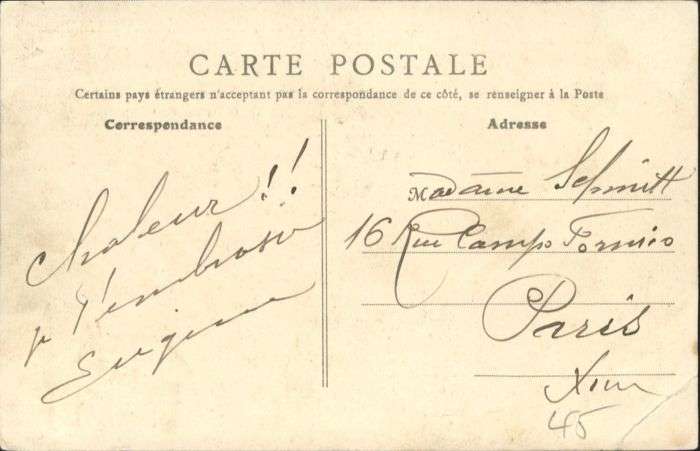 CARTE POSTALE
Certains pays étrangers n'acceptant pas la correspondance de ce côté, se renseigner à la Poste
Correspondance
Adresse
Chaleur!!
je t'embrasse
Eugène
Madame Schmitt
16 Rue Campo Formio
Paris
XIII
45